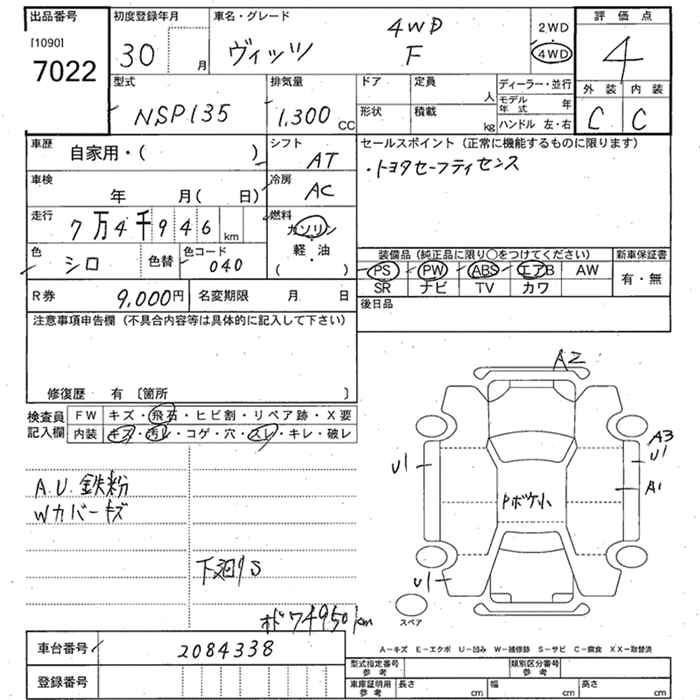 出品番号 初度登録年月 車名・グレード 評価点
[1090]
7022
30 月
ヴィッツ 4WD F
2WD
4WD
4
外装 内装
C C
型式 排気量 ドア 定員 人 ディーラー・並行
NSP135 1,300 CC 形状 積載 kg モデル年式 年
ハンドル 左・右
車歴 自家用・( )
シフト AT
セールスポイント (正常に機能するものに限ります)
・トヨタセーフティセンス
車検 年 月( 日)
冷房 AC
走行 7万4千946km
燃料 ガソリン
軽・油
( )
色 シロ 色替 色コード 040
装備品 (純正品に限り○をつけてください) 新車保証書
PS PW ABS エアB AW 有・無
SR ナビ TV カワ
R券 9,000円 名変期限 月 日
後日品
注意事項申告欄 (不具合内容等は具体的に記入して下さい)
修復歴 有 [箇所 ]
検査員記入欄
FW キズ・飛石・ヒビ割・リペア跡・X要
内装 キズ・汚レ・コゲ・穴・スレ・キレ・破レ
A2
A3
U1
U1
A1
Pボケ小
U1
A.U.鉄粉
Wカバーキズ
下廻りS
オド74950km
スペア
車台番号 2084338
登録番号
A−キズ E−エクボ U−凹み W−補修跡 S−サビ C−腐食 XX−取替済
型式指定番号 参考 類別区分番号 参考
車庫証明用 参考 長さ cm 幅 cm 高さ cm